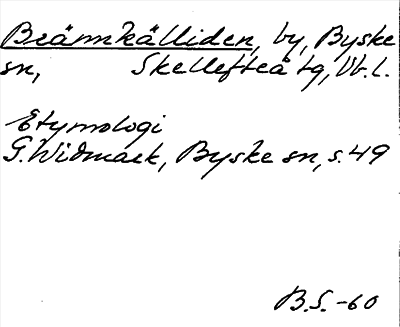 Brännkälliden, by, Byske
sn, Skellefteå tg, Vb.l.
Etymologi
G. Widmark, Byske sn, s. 49
B.S. -60